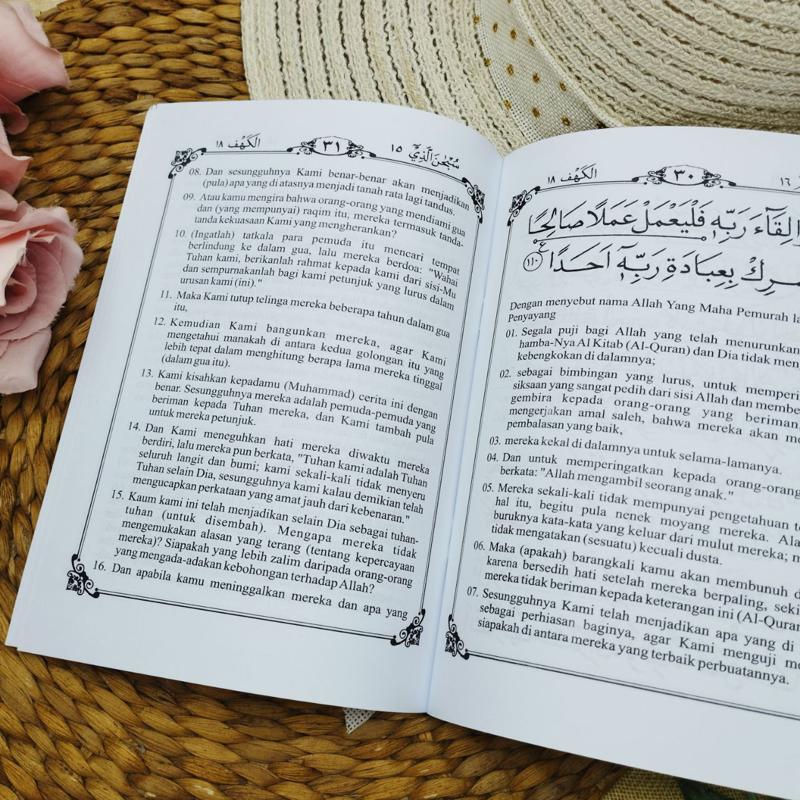 الكهف ١٨ ٣٠ ١٦
لِقَآءَ رَبِّهٖ فَلْيَعْمَلْ عَمَلًا صَالِحًا
بِعِبَادَةِ رَبِّهٖٓ اَحَدًا ﴿١١٠﴾
Dengan menyebut nama Allah Yang Maha Pemurah
Penyayang
01. Segala puji bagi Allah yang telah menurunkan
hamba-Nya Al Kitab (Al-Quran) dan Dia tidak
kebengkokan di dalamnya;
02. sebagai bimbingan yang lurus, untuk
siksaan yang sangat pedih dari sisi Allah dan
gembira kepada orang-orang yang beriman,
mengerjakan amal saleh, bahwa mereka akan
pembalasan yang baik,
03. mereka kekal di dalamnya untuk selama-lamanya.
04. Dan untuk memperingatkan kepada orang-orang
berkata: "Allah mengambil seorang anak."
05. Mereka sekali-kali tidak mempunyai pengetahuan
hal itu, begitu pula nenek moyang mereka.
buruknya kata-kata yang keluar dari mulut mereka;
tidak mengatakan (sesuatu) kecuali dusta.
06. Maka (apakah) barangkali kamu akan membunuh
karena bersedih hati setelah mereka berpaling,
mereka tidak beriman kepada keterangan ini
07. Sesungguhnya Kami telah menjadikan apa yang di
sebagai perhiasan baginya, agar Kami menguji
siapakah di antara mereka yang terbaik perbuatannya.
الكهف ١٨ ٣١ سبحن الذي ١٥
08. Dan sesungguhnya Kami benar-benar akan menjadikan
(pula) apa yang di atasnya menjadi tanah rata lagi tandus.
09. Atau kamu mengira bahwa orang-orang yang mendiami gua
dan (yang mempunyai) raqim itu, mereka termasuk tanda-
tanda kekuasaan Kami yang mengherankan?
10. (Ingatlah) tatkala para pemuda itu mencari tempat
berlindung ke dalam gua, lalu mereka berdoa: "Wahai
Tuhan kami, berikanlah rahmat kepada kami dari sisi-Mu
dan sempurnakanlah bagi kami petunjuk yang lurus dalam
urusan kami (ini)."
11. Maka Kami tutup telinga mereka beberapa tahun dalam gua
itu,
12. Kemudian Kami bangunkan mereka, agar Kami
mengetahui manakah di antara kedua golongan itu yang
lebih tepat dalam menghitung berapa lama mereka tinggal
(dalam gua itu).
13. Kami kisahkan kepadamu (Muhammad) cerita ini dengan
benar. Sesungguhnya mereka adalah pemuda-pemuda yang
beriman kepada Tuhan mereka, dan Kami tambah pula
untuk mereka petunjuk.
14. Dan Kami meneguhkan hati mereka diwaktu mereka
berdiri, lalu mereka pun berkata, "Tuhan kami adalah Tuhan
seluruh langit dan bumi; kami sekali-kali tidak menyeru
Tuhan selain Dia, sesungguhnya kami kalau demikian telah
mengucapkan perkataan yang amat jauh dari kebenaran."
15. Kaum kami ini telah menjadikan selain Dia sebagai tuhan-
tuhan (untuk disembah). Mengapa mereka tidak
mengemukakan alasan yang terang (tentang kepercayaan
mereka)? Siapakah yang lebih zalim daripada orang-orang
yang mengada-adakan kebohongan terhadap Allah?
16. Dan apabila kamu meninggalkan mereka dan apa yang